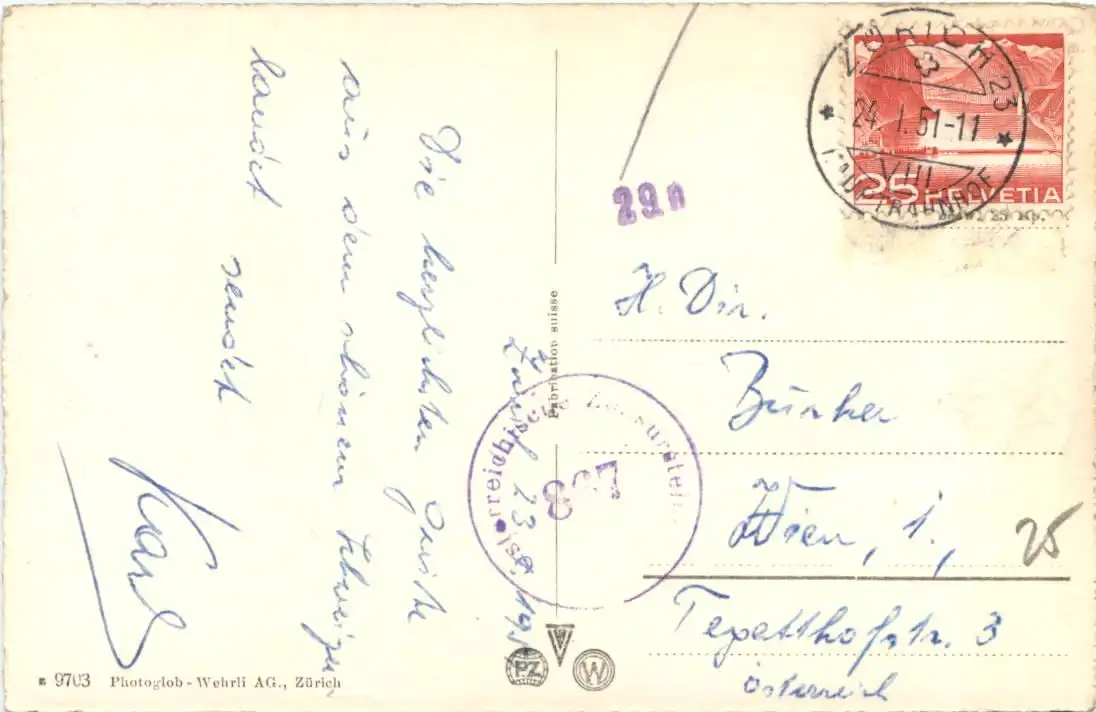 Zürich 23. I. 195
Die herzlichsten Grüße
aus dem schönen Schweizer
landet
sendet
Karl
ZÜRICH 23
24. I. 51-11
VIII
HAUPTBAHNHOF
25 HELVETIA
29 n
H. Dir.
Bunker
Wien, 1.,
25
Tegetthofstr. 3
Österreich
Österreichische Zensurstelle
837
Fabrication suisse
PZ
W
9703 Photoglob-Wehrli AG., Zürich